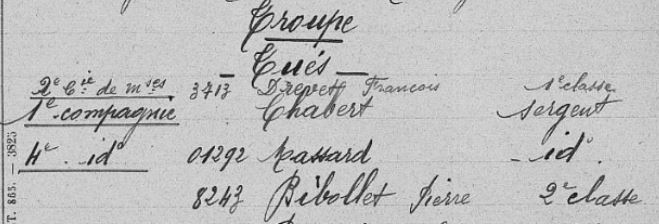 Troupe
Tués —
2e Cie de mses 3713 Drevett François 1e classe
1e compagnie Chabert Sergent
4e id° 01292 Massard - id°.
8243 Bibollet Pierre 2e classe
T. 865. — 3825